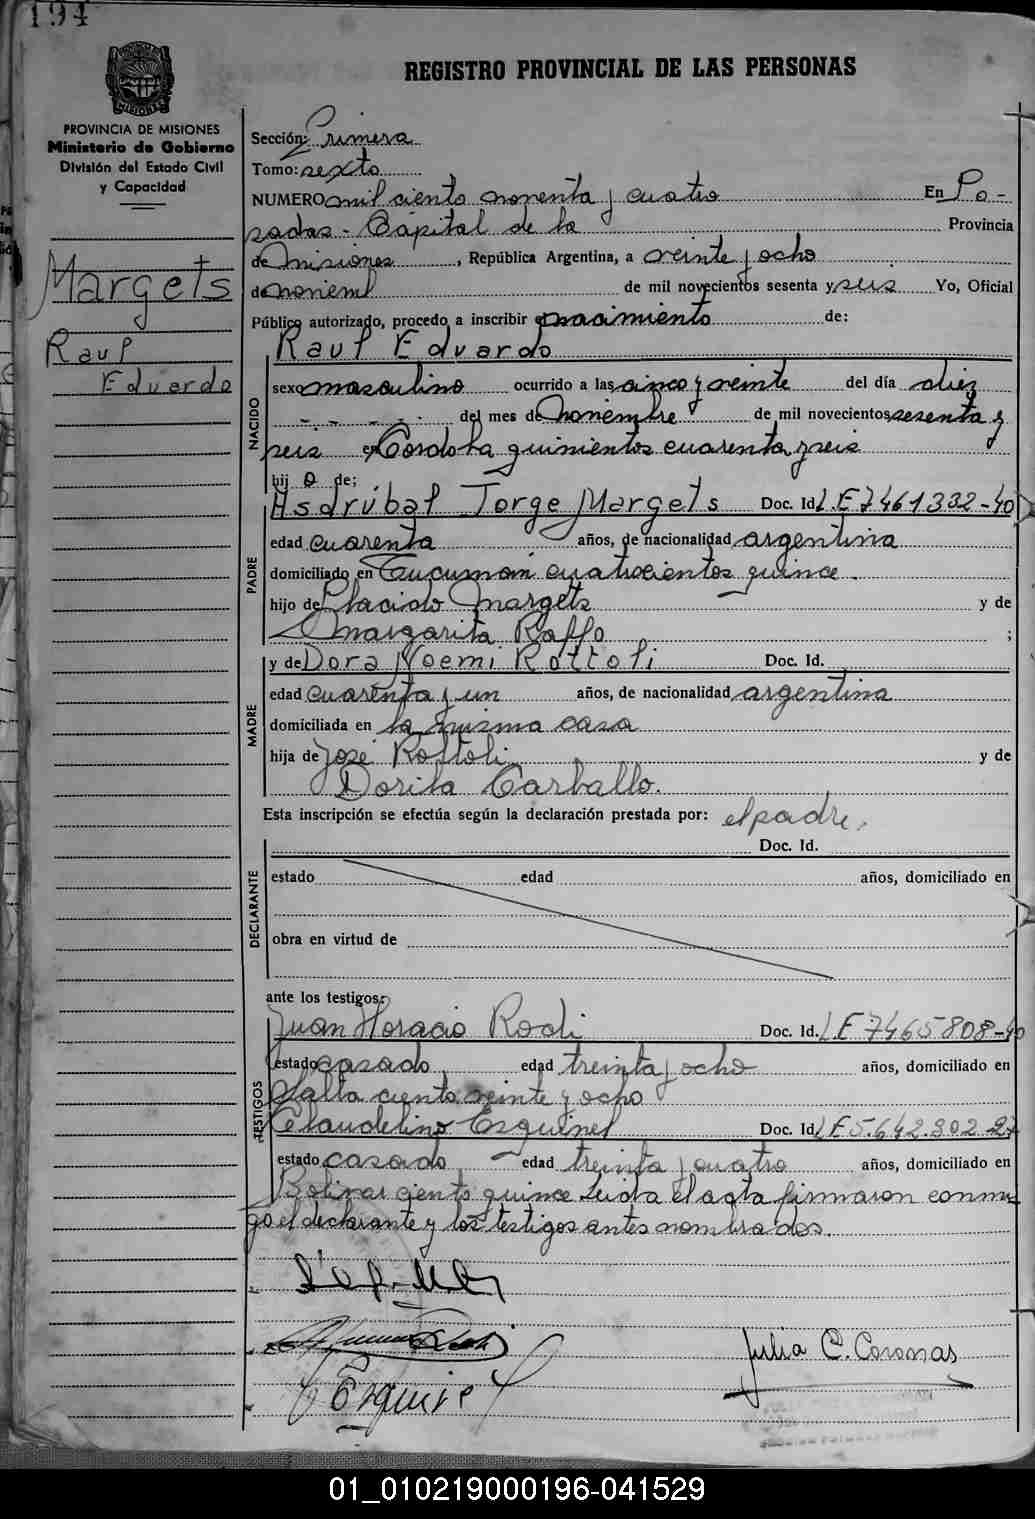 194
REGISTRO PROVINCIAL DE LAS PERSONAS
MISIONES
PROVINCIA DE MISIONES
Ministerio de Gobierno
División del Estado Civil
y Capacidad
Margets
Raul
Eduardo
Sección: Primera
Tomo: sexto
NUMERO mil ciento noventa y cuatro En Po-
sadas - Capital de la Provincia
de Misiones, República Argentina, a veinte y ocho
de noviemb de mil novecientos sesenta y seis Yo, Oficial
Público autorizado, procedo a inscribir el nacimiento de:
Raul Eduardo
NACIDO
sexo masculino ocurrido a las cinco y veinte del día diez
- - - - del mes de Noviembre de mil novecientos sesenta y
seis en Cordoba quinientos cuarenta y seis
hij o de;
PADRE
Asdrúbal Jorge Margets Doc. Id. L.E 7461332-40
edad cuarenta años, de nacionalidad argentina
domiciliado en Tucuman cuatrocientos quince.
hijo de Placido Margets y de
Margarita Raffo ;
MADRE
y de Dora Noemi Rottoli Doc. Id.
edad cuarenta y un años, de nacionalidad argentina
domiciliada en la misma casa
hija de José Rottoli y de
Dorila Carballo.
Esta inscripción se efectúa según la declaración prestada por: el padre.
DECLARANTE
Doc. Id.
estado edad años, domiciliado en
obra en virtud de
ante los testigos:
TESTIGOS
Juan Horacio Rodi Doc. Id. L.E 7465808-40
estado casado edad treinta y ocho años, domiciliado en
Salta ciento veinte y ocho
Claudelino Esquivel Doc. Id. L.E 5.642.302 27
estado casado edad treinta y cuatro años, domiciliado en
Bolivar ciento quince Leida el acta firmaron conmi-
go el declarante y los testigos antes nombrados.
Esquivel
Julia C. Coronas
01_010219000196-041529